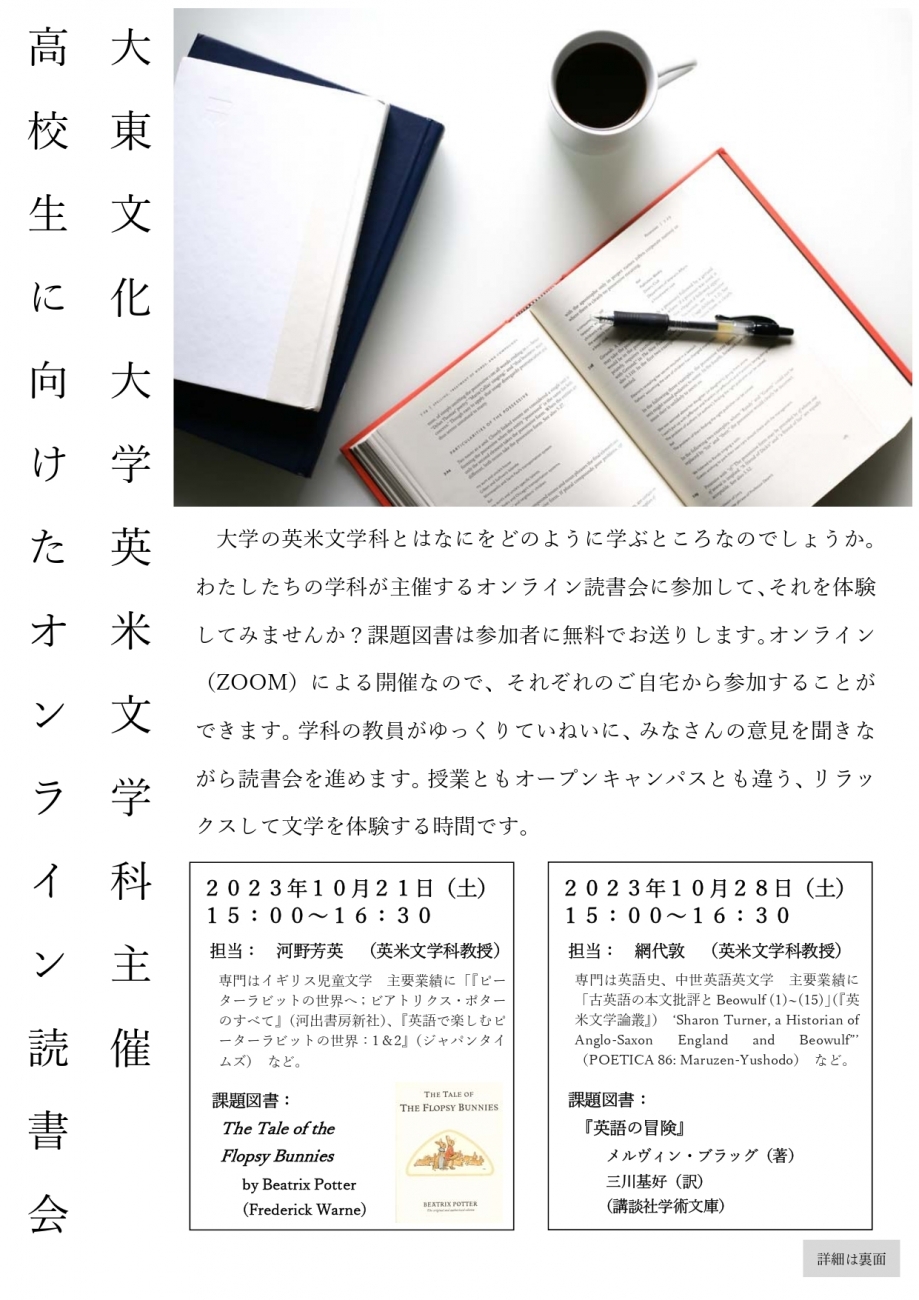 大東文化大学英米文学科主催
高校生に向けたオンライン読書会
大学の英米文学科とはなにをどのように学ぶところなのでしょうか。
わたしたちの学科が主催するオンライン読書会に参加して、それを体験
してみませんか？課題図書は参加者に無料でお送りします。オンライン
（ZOOM）による開催なので、それぞれのご自宅から参加することが
できます。学科の教員がゆっくりていねいに、みなさんの意見を聞きな
がら読書会を進めます。授業ともオープンキャンパスとも違う、リラッ
クスして文学を体験する時間です。
２０２３年１０月２１日（土）
１５：００～１６：３０
担当： 河野芳英 （英米文学科教授）
専門はイギリス児童文学　主要業績に「『ピー
ターラビットの世界へ：ビアトリクス・ポター
のすべて』（河出書房新社）、『英語で楽しむピ
ーターラビットの世界：1＆2』（ジャパンタイ
ムズ）　など。
課題図書：
The Tale of the
Flopsy Bunnies
by Beatrix Potter
（Frederick Warne）
THE TALE OF
THE FLOPSY BUNNIES
BEATRIX POTTER
２０２３年１０月２８日（土）
１５：００～１６：３０
担当： 網代敦 （英米文学科教授）
専門は英語史、中世英語英文学　主要業績に
「古英語の本文批評と Beowulf (1)~(15)」（『英
米文学論叢』）　‘Sharon Turner, a Historian of
Anglo-Saxon England and Beowulf”’
（POETICA 86: Maruzen-Yushodo）　など。
課題図書：
『英語の冒険』
メルヴィン・ブラッグ（著）
三川基好（訳）
（講談社学術文庫）
詳細は裏面